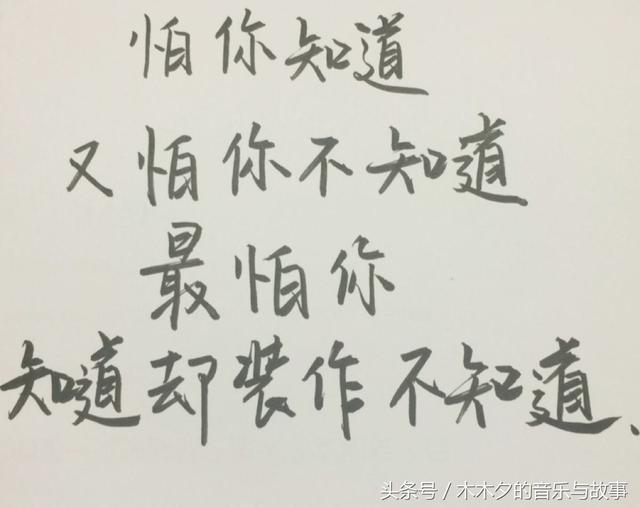 怕你知道
又怕你不知道
最怕你
知道却装作不知道、
头条号/木木夕的音乐与故事